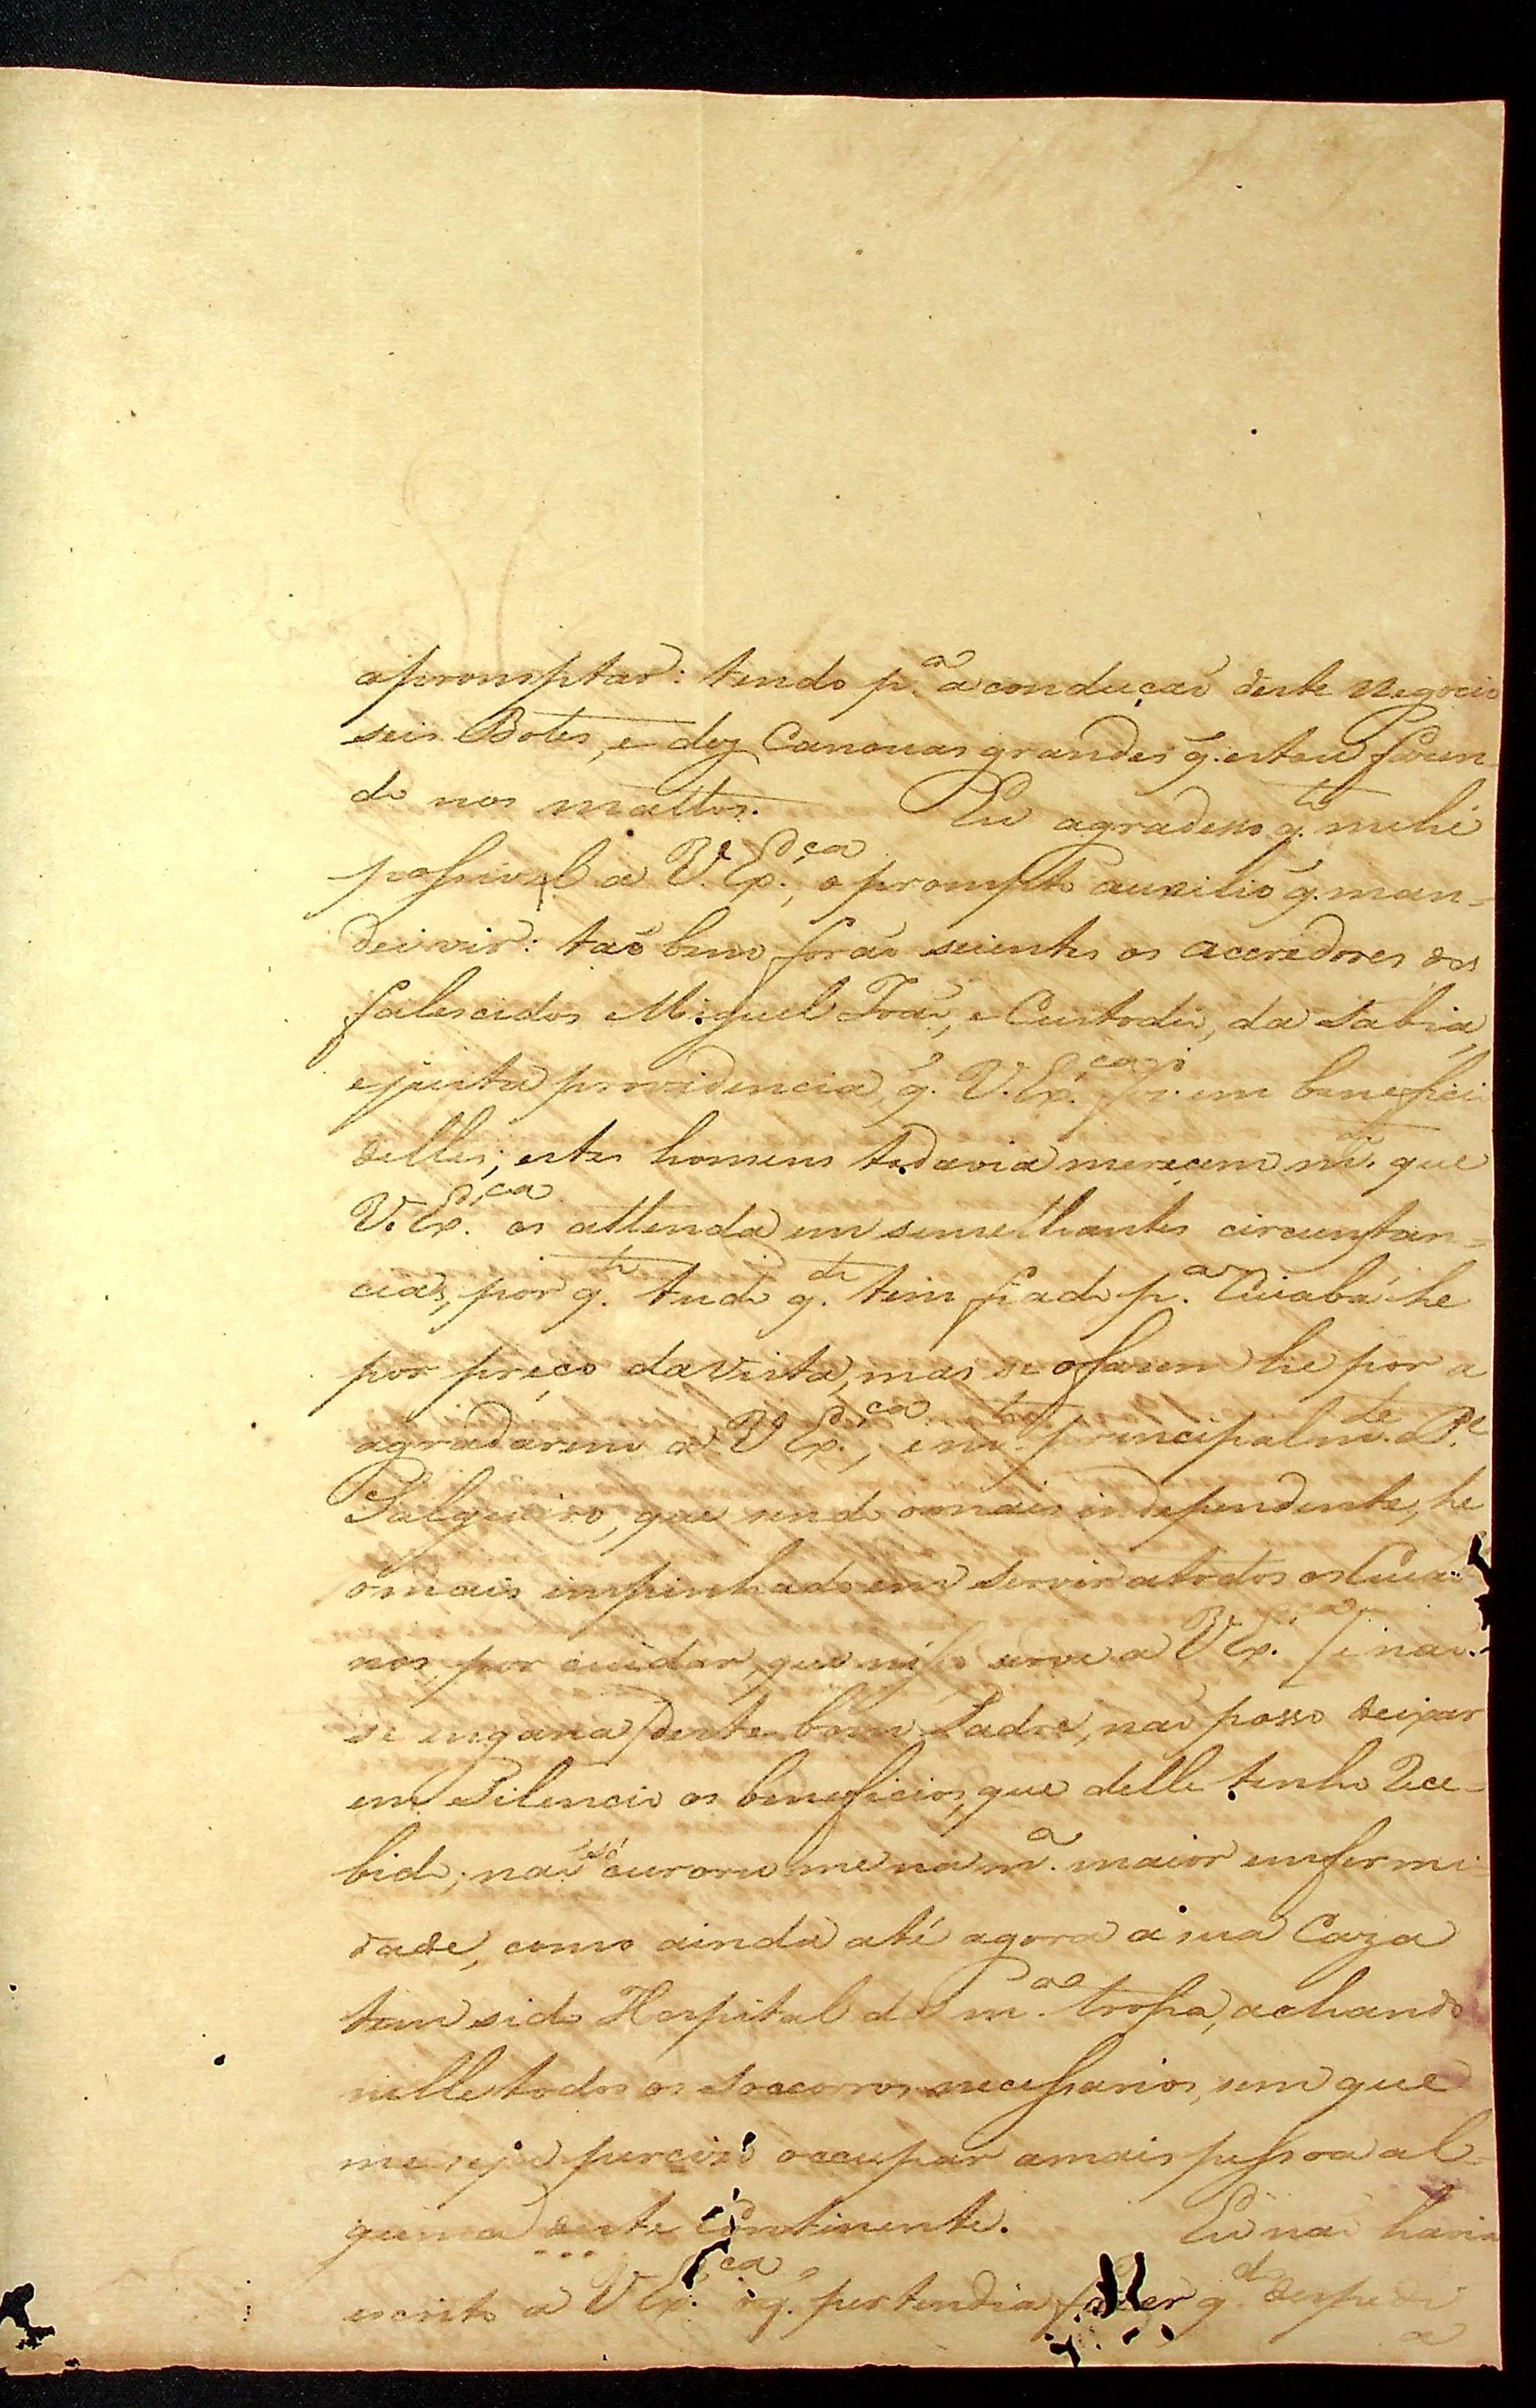 apromptar: tendo p.ª a conduçaõ deste Negocio
seis Botes, e dez Canouas grandes q̃. estou fazen
do nos mattos. Eu agradesso q.to mehé
possivel a V. Ex.ça, o prompto auxilio q̃. man-
deivir: taõ bem foraõ scientes os acceredores dos
falescidos Miguel Joaõ, e Custodio, da Sabia,
ejusta providencia, q̃. V. Ex.ça foi. em beneficio
delles; estes homens todavia mereçem m.to que
V. Ex.ça os attenda em semelhantes circunstan=
cias, por q.to tudo q.to tem fiado p.ª Cuiabá he
por preço davista, mas se ofazem he por a
agradarem a V Ex.ça, e m.to principalm.te o P.e
Salgueiro, que sendo omais independente, he
omais impinhadoem servir atodos os Cuia
nos, por cuidar, que nisso serve a V Ex.ça /e naõ
se engana/ deste bom Padre, naõ posso deixar
em Silencio os beneficios, que delle tenho Rece-
bido; naõ só curoru me na m.ª maior emfermi
dade, como ainda até agora a sua Caza
tem sido Hospital da m.ª tropa, achando
nelle todos os Soccorros necessarios, sem que
me seja percizo occupar amais pessoa al=
guma deste Continente. Eu naõ havia
escrito a V Ex.ça oq̃. pertendia fazer q.do despedi
a